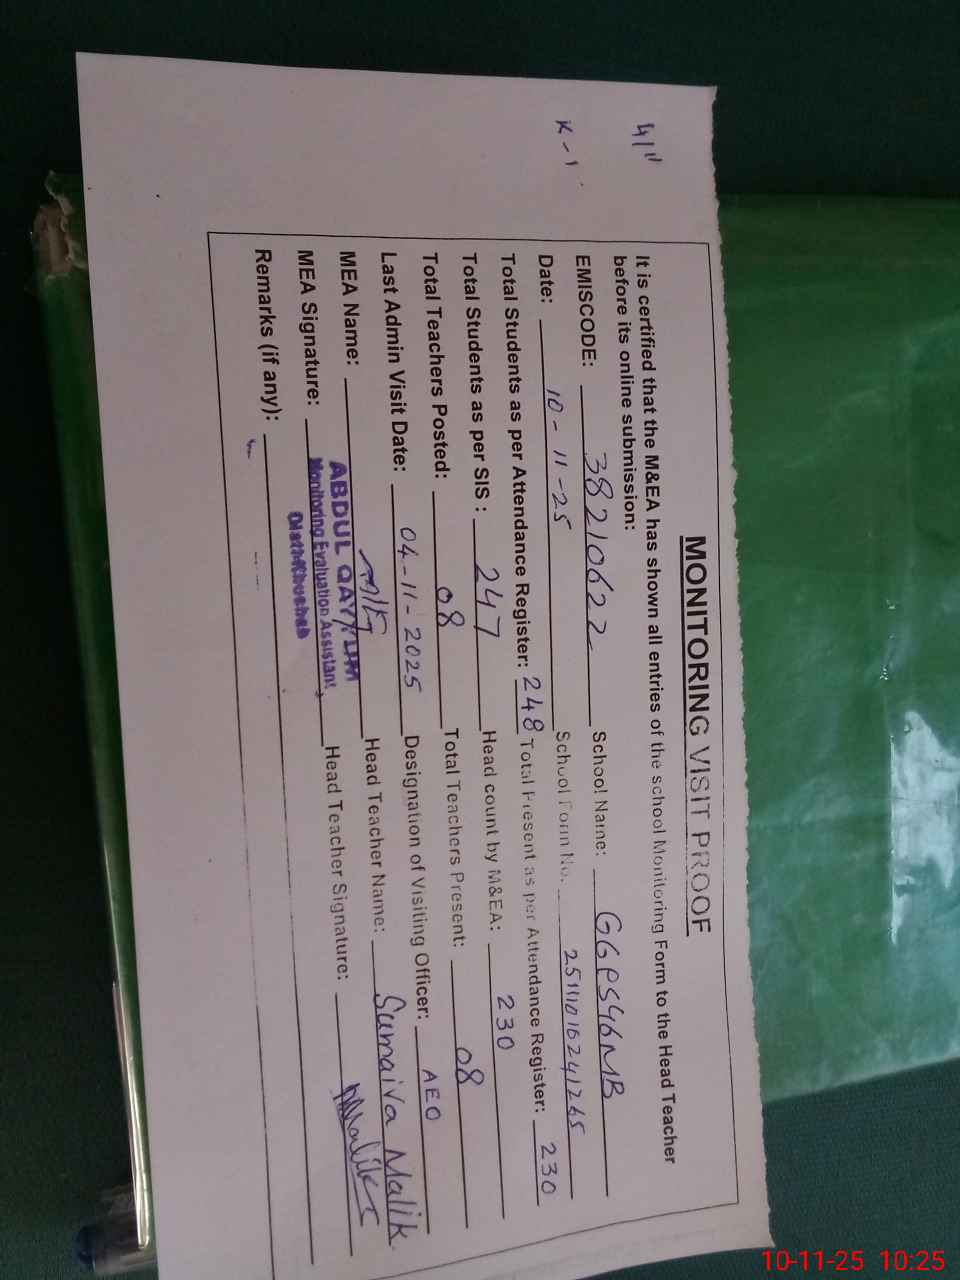 4/11
K-1
MONITORING VISIT PROOF
It is certified that the M&EA has shown all entries of the school Monitoring Form to the Head Teacher
before its online submission:
EMISCODE: 38210622 School Name: GGPS46MB
Date: 10-11-25 School Form No. 25111016241265
Total Students as per Attendance Register: 248 Total Present as per Attendance Register: 230
Total Students as per SIS : 247 Head count by M&EA: 230
Total Teachers Posted: 08 Total Teachers Present: 08
Last Admin Visit Date: 04-11-2025 Designation of Visiting Officer: AEO
MEA Name: ABDUL QAYYUM Head Teacher Name: Sumaiya Malik
MEA Signature: Monitoring Evaluation Assistant Head Teacher Signature:
Distt. Khushab
Remarks (if any):
10-11-25 10:25